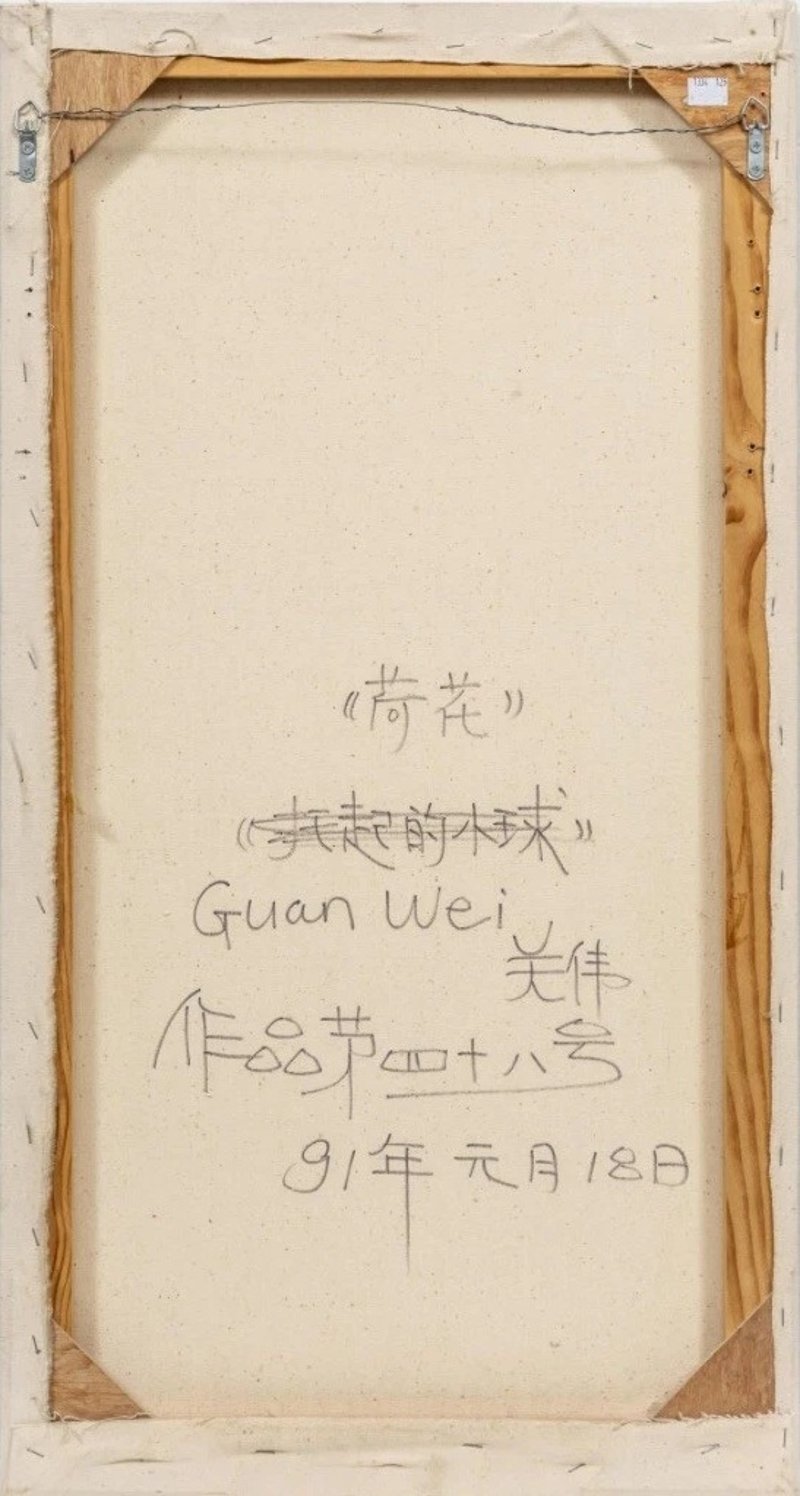 《荷花》
《托起的小球》
Guan Wei
关伟
作品第四十八号
91年元月18日